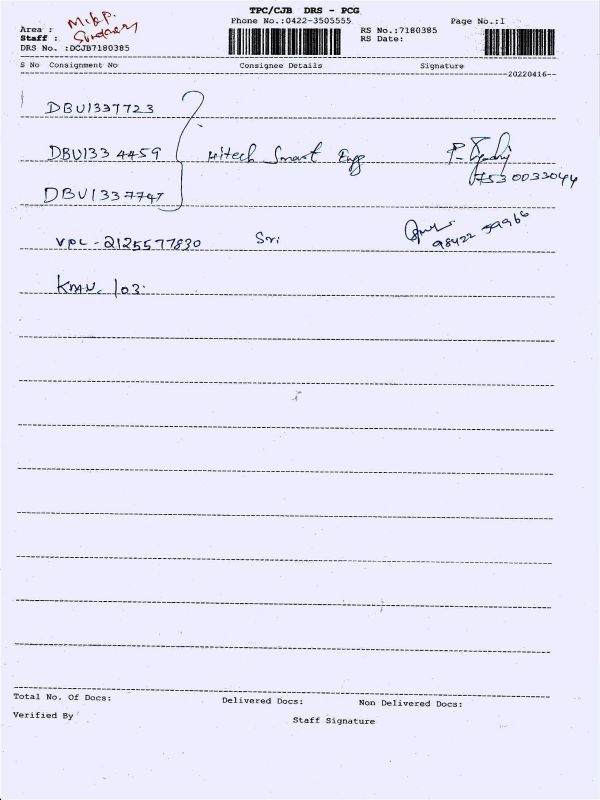 TPC/CJB DRS - PCG
Phone No.:0422-3505555
Page No.:1
Area :
Staff :
DRS No. :DCJB7180385
RS No.:7180385
RS Date:
S No Consignment No Consignee Details Signature
20220416
DBU1337723
DBU1334459 Hitech Smart Engg
7530033044
DBU1337747
VPL-2125577830 Sri
98422 59966
103.
Total No. Of Docs: Delivered Docs: Non Delivered Docs:
Verified By Staff Signature